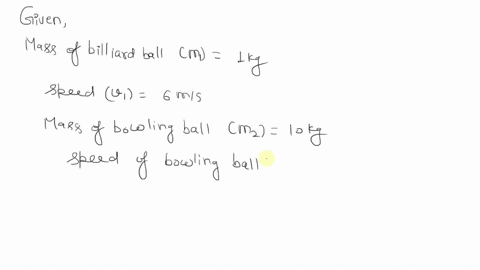 Given,
Mass of billiard ball (m) = 1 kg
speed (v₁) = 6 m/s
Mass of bowling ball (m₂) = 10 kg
speed of bowling ball